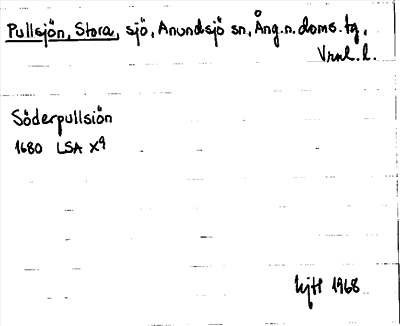 Pullsjön, Stora, sjö, Anundsjö sn, Ång.n.doms.tg,
Vrnl.l.
Söderpullsiön
1680 LSA X9
hjtl 1968